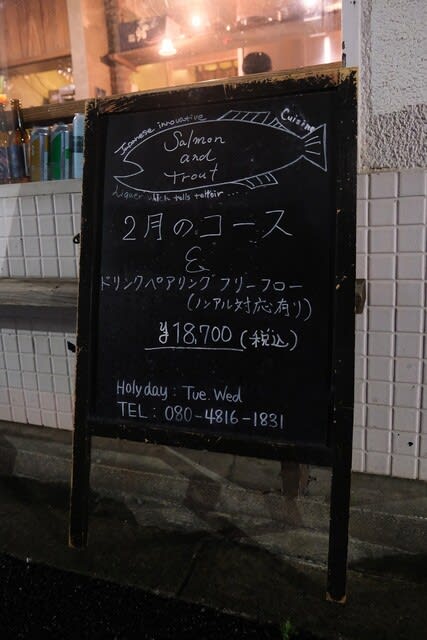 Japanese innovative
Cuisine
Salmon
and
trout
Liquer which tells
2月のコース
&
ドリンクペアリングフリーフロー
(ノンアル対応有り)
¥18,700 (税込)
Holyday : Tue. Wed
TEL : 080-4816-1831